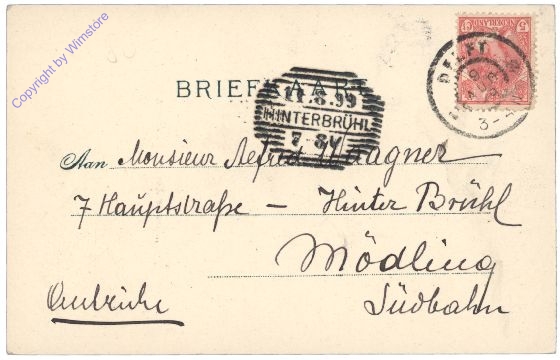 Copyright by Wimstore
BRIEFKAART
DELFT
3-4
11.8.99
HINTERBRÜHL
Aan Monsieur Alfred Waagner
7 Hauptstraße – Hinter Brühl
Mödling
Südbahn
Autriche